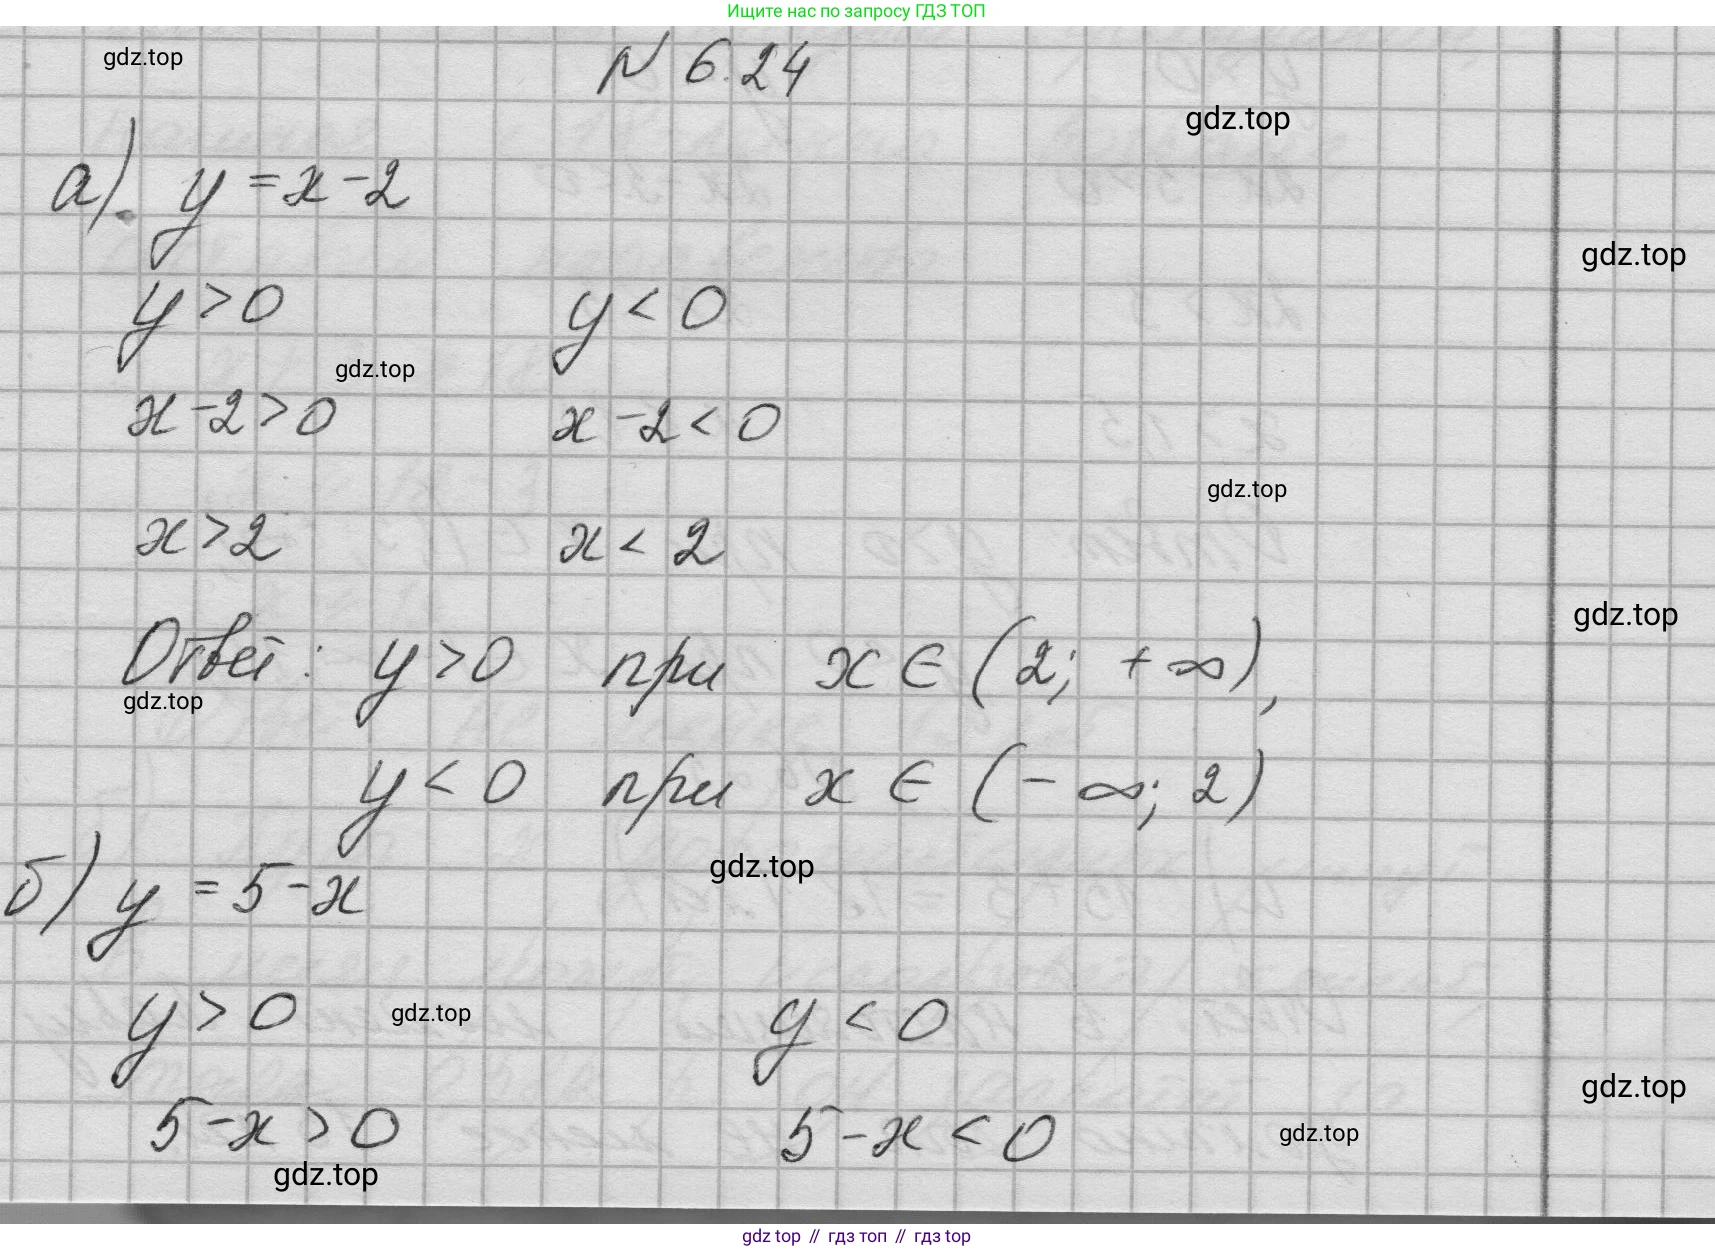 Ищите нас по запросу ГДЗ ТОП
gdz.top
N 6.24
gdz.top
а). y = x - 2
gdz.top
y > 0 y < 0
gdz.top
x - 2 > 0 x - 2 < 0
gdz.top
x > 2 x < 2
gdz.top
Ответ: y > 0 при x ∈ (2; + ∞),
gdz.top
y < 0 при x ∈ (- ∞; 2)
gdz.top
б) y = 5 - x
y > 0 gdz.top y < 0
gdz.top
5 - x > 0 5 - x < 0
gdz.top
gdz.top
gdz top // гдз топ // гдз top